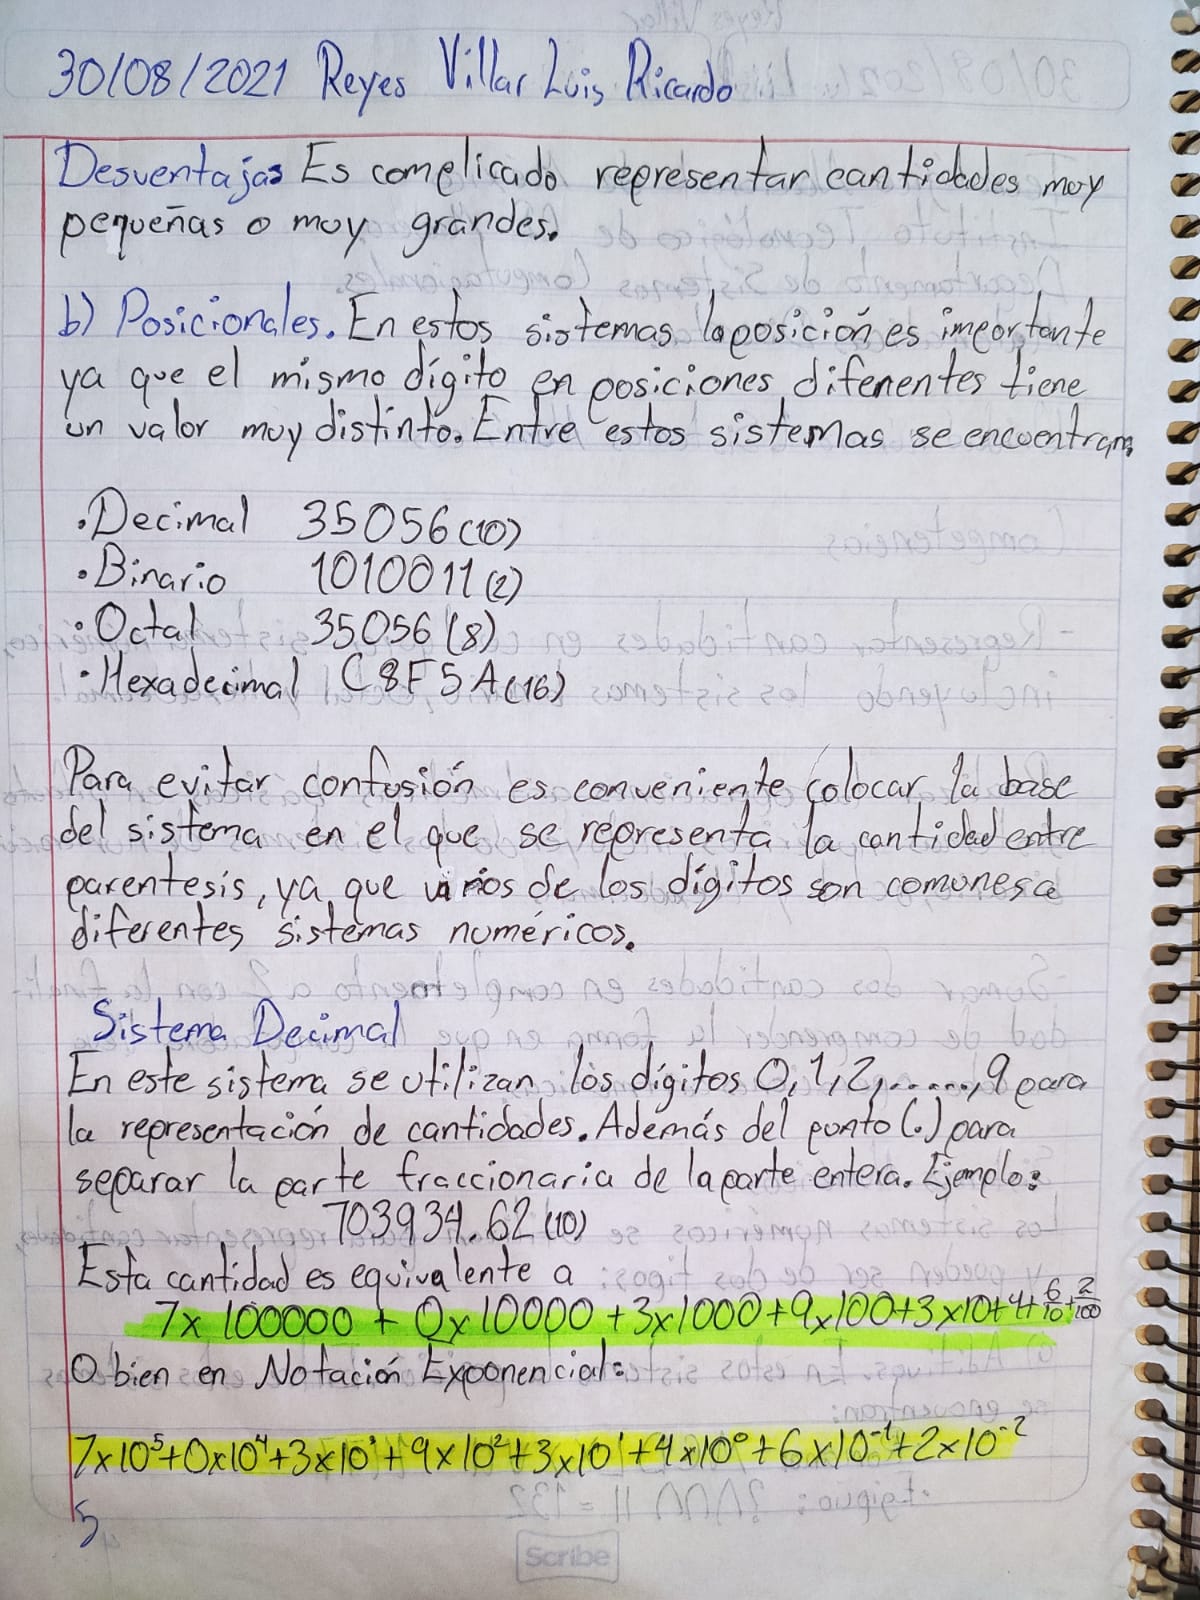 30/08/2021 Reyes Villar Luis Ricardo
Desventajas Es complicado representar cantidades muy
pequeñas o muy grandes.
b) Posicionales. En estos sistemas la posición es importante
ya que el mismo dígito en posiciones diferentes tiene
un valor muy distinto. Entre estos sistemas se encuentran:
• Decimal 35056(10)
• Binario 1010011(2)
• Octal 35056(8)
• Hexadecimal C8F5A(16)
Para evitar confusión es conveniente colocar la base
del sistema en el que se representa la cantidad entre
parentesis, ya que varios de los dígitos son comunes a
diferentes sistemas numéricos.
Sistema Decimal
En este sistema se utilizan los dígitos 0,1,2,.....,9 para
la representación de cantidades. Además del punto (.) para
separar la parte fraccionaria de la parte entera. Ejemplo:
703934.62(10)
Esta cantidad es equivalente a
7x100000 + 0x10000 + 3x1000 + 9x100 + 3x10 + 4 + 6/10 + 2/100
O bien en Notación Exponencial:
7x10⁵+0x10⁴+3x10³+9x10²+3x10¹+4x10⁰+6x10⁻¹+2x10⁻²
5
Scribe